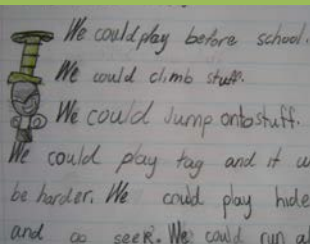 We could play before school.
We could climb stuff.
We could Jump onto stuff.
We could play tag and it
be harder. We could play hide
and go seek. We could run